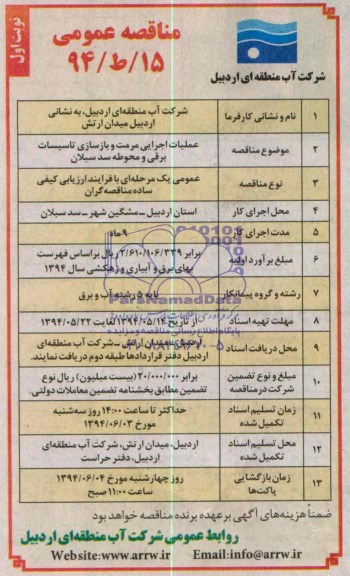 نوبت اول
مناقصه عمومی
۱۵/ط/۹۴
شرکت آب منطقه ای اردبیل
۱ نام و نشانی کارفرما شرکت آب منطقه‌ای اردبیل، به نشانی
اردبیل میدان ارتش
۲ موضوع مناقصه عملیات اجرایی مرمت و بازسازی تاسیسات
برقی و محوطه سد سبلان
۳ نوع مناقصه عمومی یک مرحله‌ای با فرایند ارزیابی کیفی
ساده مناقصه گران
۴ محل اجرای کار استان اردبیل – مشگین شهر – سد سبلان
۵ مدت اجرای کار ۹ ماه
۶ مبلغ برآورد اولیه برابر ۲/۶۱۰/۱۰۶/۳۳۹ ریال براساس فهرست
بهای برق و آبیاری و زهکشی سال ۱۳۹۴
۷ رشته و گروه پیمانکار پایه ۵ رشته آب و برق
۸ مهلت تهیه اسناد از تاریخ ۱۳۹۴/۰۵/۱۴ لغایت ۱۳۹۴/۰۵/۲۲
۹ محل دریافت اسناد اردبیل، میدان ارتش – شرکت آب منطقه‌ای
اردبیل دفتر قراردادها طبقه دوم دریافت نمایند.
۱۰ مبلغ و نوع تضمین شرکت در مناقصه برابر ۲۰/۰۰۰/۰۰۰ (بیست میلیون) ریال نوع
تضمین مطابق بخشنامه تضمین معاملات دولتی.
۱۱ زمان تسلیم اسناد تکمیل شده حداکثر تا ساعت ۱۴:۰۰ روز سه‌شنبه
مورخ ۱۳۹۴/۰۶/۰۳
۱۲ محل تسلیم اسناد تکمیل شده اردبیل، میدان ارتش، شرکت آب منطقه‌ای
اردبیل، دفتر حراست
۱۳ زمان بازگشایی پاکت‌ها روز چهارشنبه مورخ ۱۳۹۴/۰۶/۰۴
ساعت ۱۱:۰۰ صبح
ضمناً هزینه‌های آگهی بر عهده برنده مناقصه خواهد بود
روابط عمومی شرکت آب منطقه‌ای اردبیل
Website:www.arrw.ir Email:info@arrw.ir
ParsNamadData
پایگاه اطلاع رسانی مناقصه و مزایده